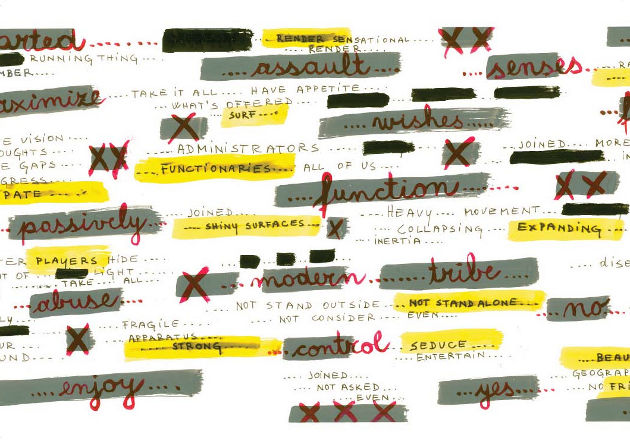 arted......
RENDER SENSATIONAL
RENDER....
X X
no...
RUNNING THING....
MBER....
....assault....
....senses....
aximize
TAKE IT ALL.... HAVE APPETITE....
...WHAT'S OFFERED
SURF....
X
....wishes....
E VISION....
OUGHTS....
E GAPS....
GRESS....
PATE....
XX
....ADMINISTRATORS
FUNCTIONARIES.... ALL OF US....
X
JOINED.... MORE
....function......
X X
....passively....
JOINED....
....SHINY SURFACES....
X
....HEAVY.... MOVEMENT....
....COLLAPSING....
INERTIA....
EXPANDING....
PLAYERS HIDE
LIGHT....
TAKE... ALL....
X
...modern.... tribe....
dise
abuse....
NOT STAND OUTSIDE....
NOT CONSIDER....
NOT STAND ALONE....
EVEN....
...no.
X
FRAGILE....
APPARATUS....
STRONG....
....control
SEDUCE....
ENTERTAIN....
UND....
BEAU
GEOGRAP
NO FRI
....enjoy....
JOINED....
....NOT ASKED....
....EVEN....
X X X
....yes....